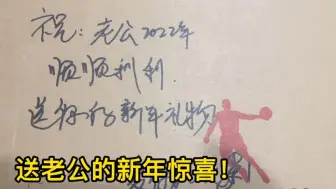 祝：老公2022年
顺顺利利.
送给你的新年礼物
送老公的新年惊喜！